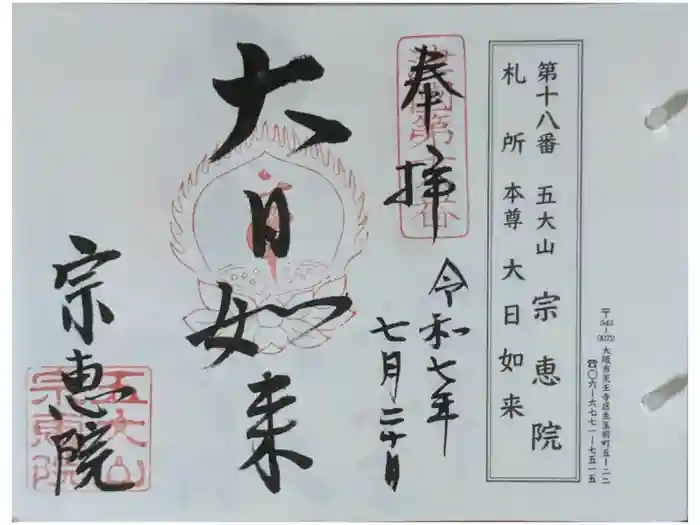 第十八番 五大山 宗恵院
札所本尊 大日如来
〒543-0072 大阪市天王寺区生玉前町五-二二
☎〇六-六七七一-七五一五
奉拝
令和七年
七月二十日
大日如来
宗恵院
五大山
宗恵院